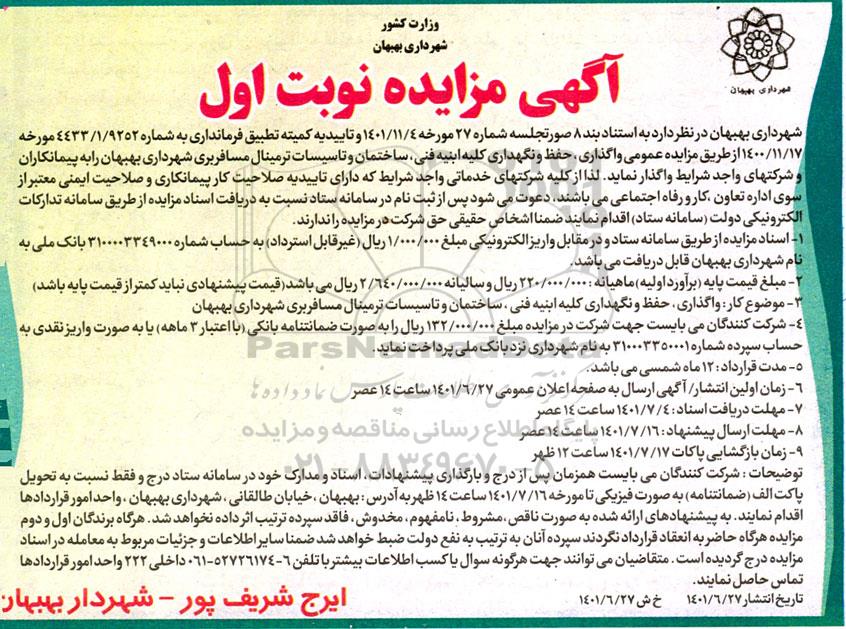 وزارت کشور
شهرداری بهبهان
شهرداری بهبهان
آگهی مزایده نوبت اول
شهرداری بهبهان در نظر دارد به استناد بند ۸ صورتجلسه شماره ۲۷ مورخه ۱۴۰۱/۱۱/۴ و تاییدیه کمیته تطبیق فرمانداری به شماره ۴۴۳۳/۱/۹۲۵۲ مورخه
۱۴۰۰/۱۱/۱۷ از طریق مزایده عمومی واگذاری، حفظ و نگهداری کلیه ابنیه فنی، ساختمان و تاسیسات ترمینال مسافربری شهرداری بهبهان را به پیمانکاران
و شرکتهای واجد شرایط واگذار نماید. لذا از کلیه شرکتهای خدماتی واجد شرایط که دارای تاییدیه صلاحیت کار پیمانکاری و صلاحیت ایمنی معتبر از
سوی اداره تعاون، کار و رفاه اجتماعی می باشند، دعوت می شود پس از ثبت نام در سامانه ستاد نسبت به دریافت اسناد مزایده از طریق سامانه تدارکات
الکترونیکی دولت (سامانه ستاد) اقدام نمایند ضمنا اشخاص حقیقی حق شرکت در مزایده را ندارند.
۱- اسناد مزایده از طریق سامانه ستاد و در مقابل واریز الکترونیکی مبلغ ۱/۰۰۰/۰۰۰ ریال (غیرقابل استرداد) به حساب شماره ۳۱۰۰۰۰۳۳۴۹۰۰۰ بانک ملی به
نام شهرداری بهبهان قابل دریافت می باشد.
۲- مبلغ قیمت پایه (برآورد اولیه) ماهیانه : ۲۲۰/۰۰۰/۰۰۰ ریال و سالیانه ۲/۶۴۰/۰۰۰/۰۰۰ ریال می باشد (قیمت پیشنهادی نباید کمتر از قیمت پایه باشد)
۳- موضوع کار: واگذاری، حفظ و نگهداری کلیه ابنیه فنی، ساختمان و تاسیسات ترمینال مسافربری شهرداری بهبهان
۴- شرکت کنندگان می بایست جهت شرکت در مزایده مبلغ ۱۳۲/۰۰۰/۰۰۰ ریال را به صورت ضمانتنامه بانکی (با اعتبار ۳ ماهه) یا به صورت واریز نقدی به
حساب سپرده شماره ۳۱۰۰۰۳۳۵۰۰۰۱ به نام شهرداری نزد بانک ملی پرداخت نماید.
۵- مدت قرارداد: ۱۲ ماه شمسی می باشد.
۶- زمان اولین انتشار/ آگهی ارسال به صفحه اعلان عمومی ۱۴۰۱/۶/۲۷ ساعت ۱۴ عصر
۷- مهلت دریافت اسناد: ۱۴۰۱/۷/۴ ساعت ۱۴ عصر
۸- مهلت ارسال پیشنهاد: ۱۴۰۱/۷/۱۶ ساعت ۱۴ عصر
۹- زمان بازگشایی پاکات ۱۴۰۱/۷/۱۷ ساعت ۱۲ ظهر
توضیحات: شرکت کنندگان می بایست همزمان پس از درج و بارگذاری پیشنهادات، اسناد و مدارک خود در سامانه ستاد درج و فقط نسبت به تحویل
پاکت الف (ضمانتنامه) به صورت فیزیکی تا مورخه ۱۴۰۱/۷/۱۶ ساعت ۱۴ ظهر به آدرس: بهبهان، خیابان طالقانی، شهرداری بهبهان، واحد امور قراردادها
اقدام نمایند. به پیشنهادهای ارائه شده به صورت ناقص، مشروط، نامفهوم، مخدوش، فاقد سپرده ترتیب اثر داده نخواهد شد. هرگاه برندگان اول و دوم
مزایده هرگاه حاضر به انعقاد قرارداد نگردند سپرده آنان به ترتیب به نفع دولت ضبط خواهد شد ضمنا سایر اطلاعات و جزئیات مربوط به معامله در اسناد
مزایده درج گردیده است. متقاضیان می توانند جهت هرگونه سوال یا کسب اطلاعات بیشتر با تلفن ۶-۰۶۱-۵۲۷۲۶۱۷۴ داخلی ۲۲۲ واحد امور قراردادها
تماس حاصل نمایند.
تاریخ انتشار ۱۴۰۱/۶/۲۷ خ ش ۱۴۰۱/۶/۲۷
ایرج شریف پور - شهردار بهبهان
ParsNamadData
پایگاه اطلاع رسانی مناقصه و مزایده
۰۲۱-۸۸۳۴۹۶۷۰-۵